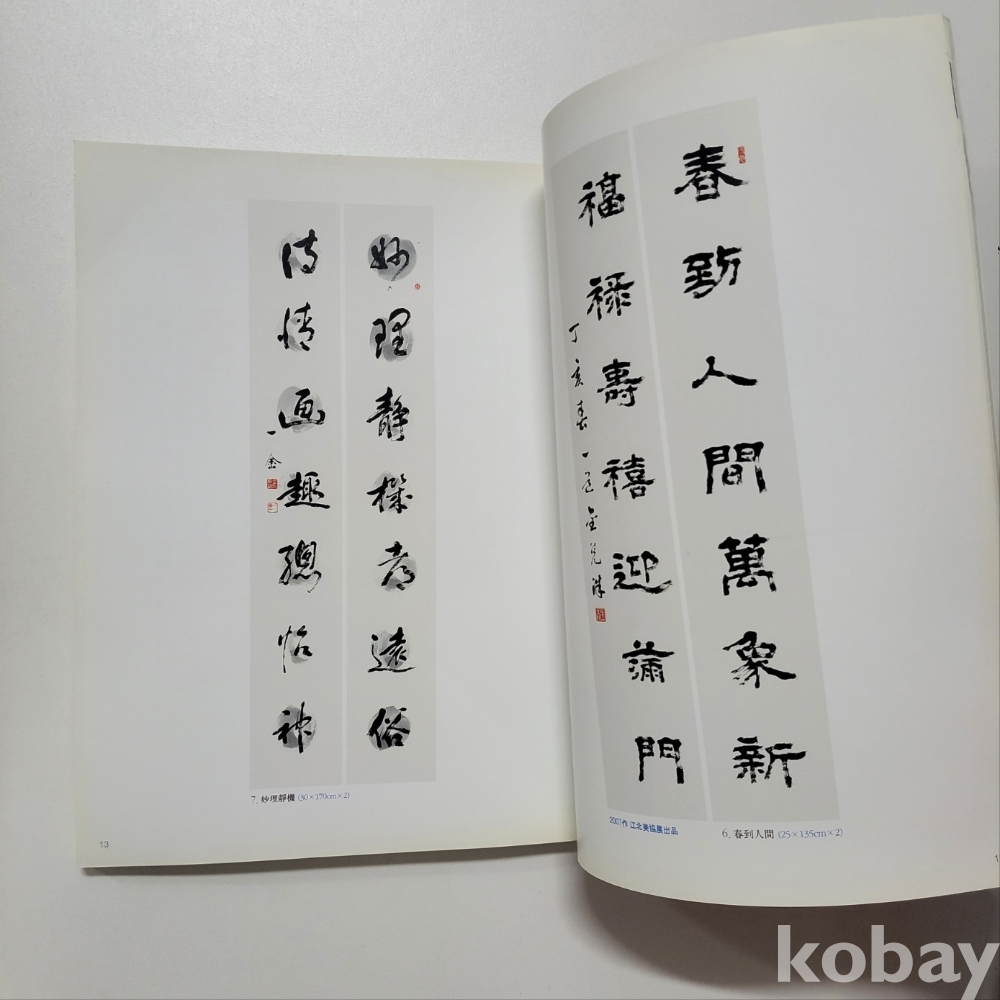 妙理靜機都遠俗
詩情画趣總怡神
7. 妙理靜機 (30×170cm×2)
13
春到人間萬象新
福祿壽禧迎滿門
丁亥春 金兌洙
2007作 江北美協展出品
6. 春到人間 (25×135cm×2)
kobay